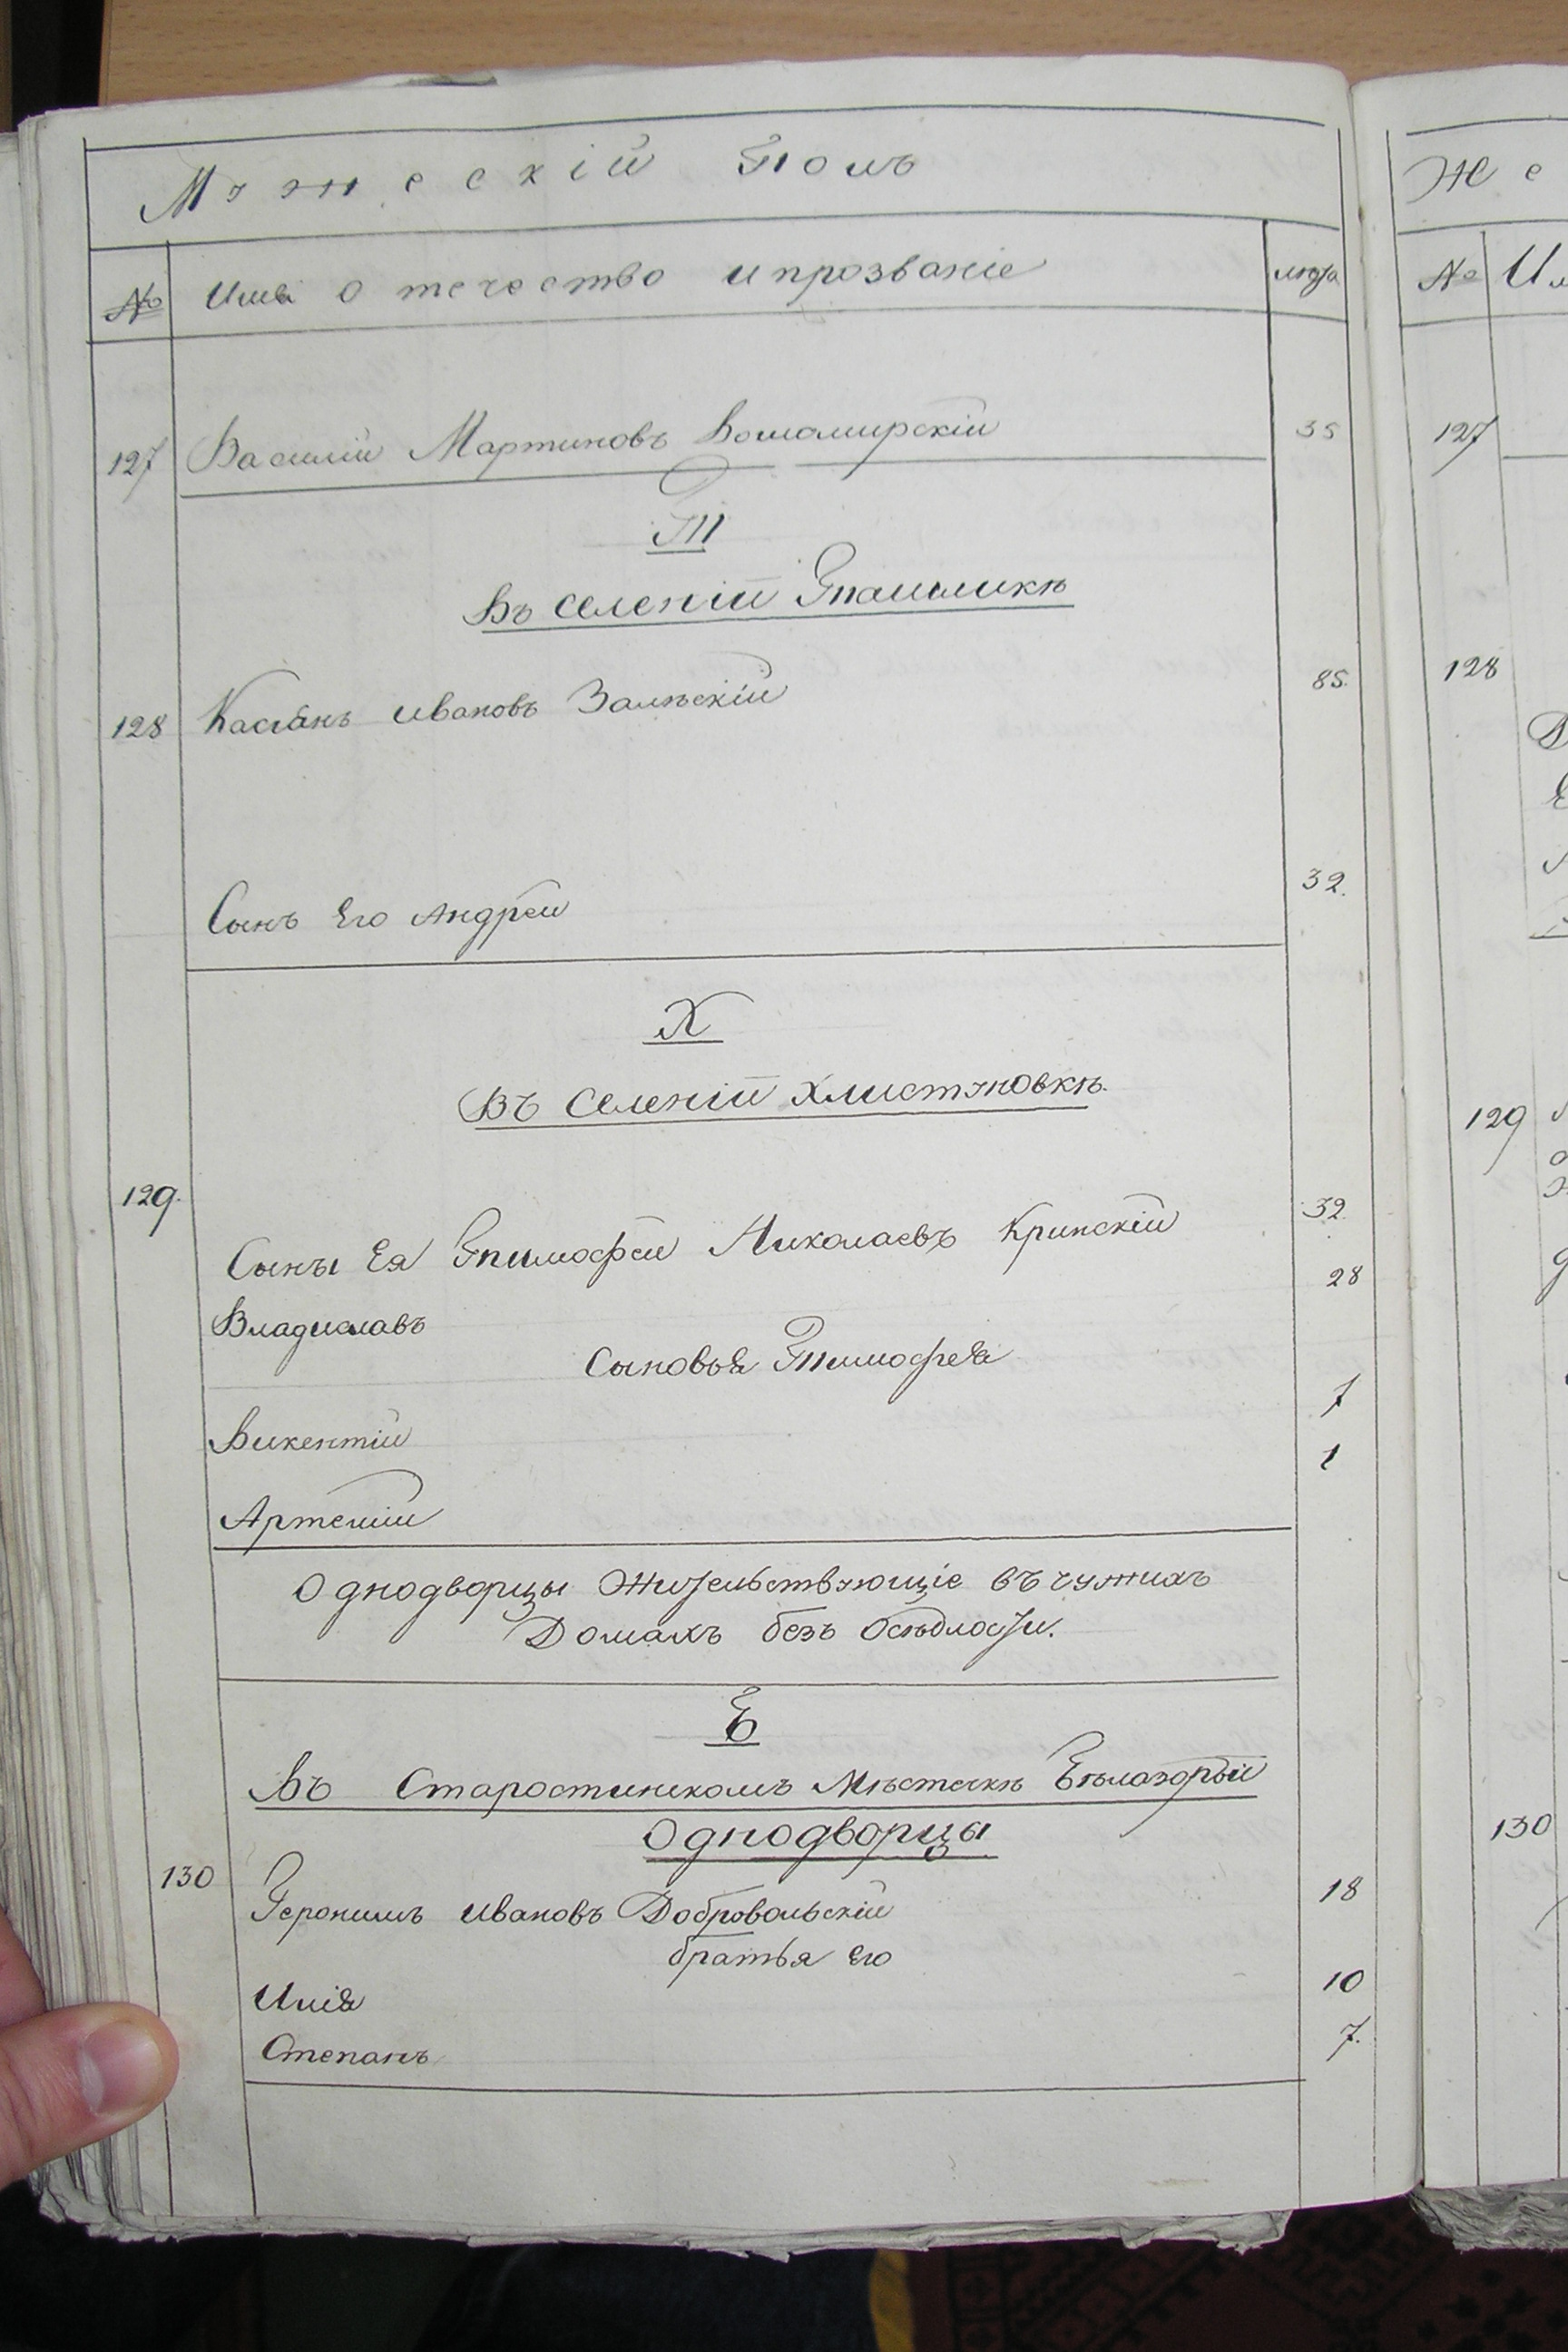 Мужескій Полъ
№ Имя отечество и прозваніе лѣта
127 Василій Мартиновъ 35
Т
Въ селеніи Ташликѣ
128 Касіянъ Ивановъ Залѣскій 85.
Сынъ Его Андрей 32.
Х
Въ Селеніи Хлистуновкѣ.
129.
Сыны Ея Тимофей Николаевъ Кринскій 32.
Владиславъ 28
Сыновья Тимофея
Викентій 7
Артемій 1
Однодворцы Жительствующіе въ чужихъ
Домахъ безъ Осѣдлости.
Б
Въ Старостинскомъ Мѣстечкѣ Бѣлозорьи
Однодворцы
130 Геронимъ Ивановъ Добровольскій 18
братья Его
Илія 10
Степанъ 7.
Же
№ И
127
128
129
130